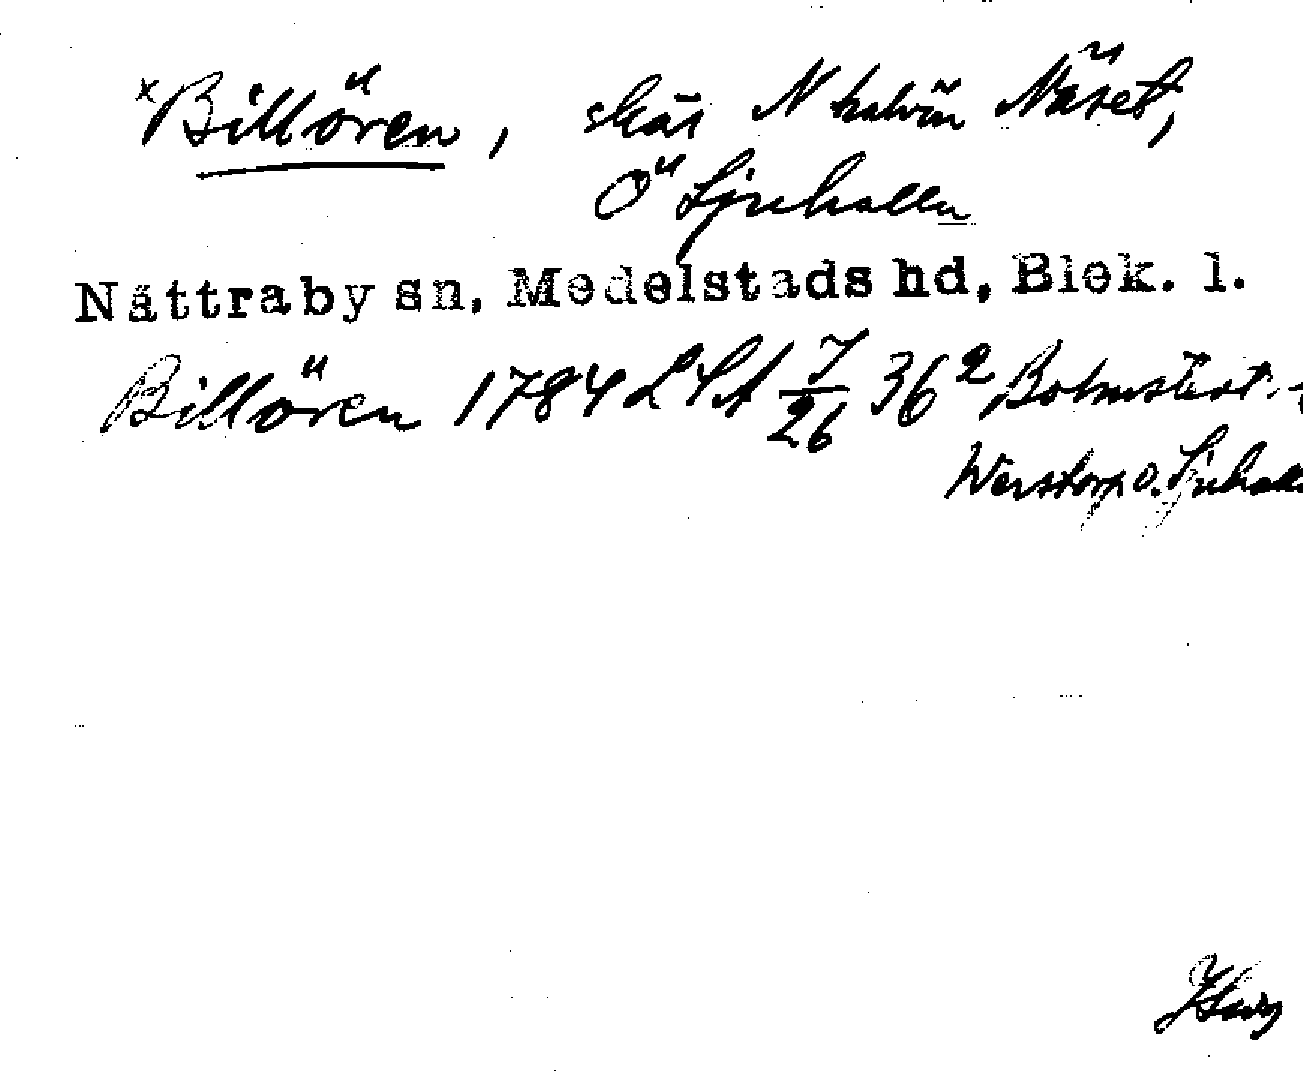 ×Billören, skär N halvön Näset,
Ö Ljuhallen
Nättraby sn, Medelstads hd, Blek. l.
Billören 1784 LSA 7/26 36² Bolmstext.
Werstorp o. Ljuhall